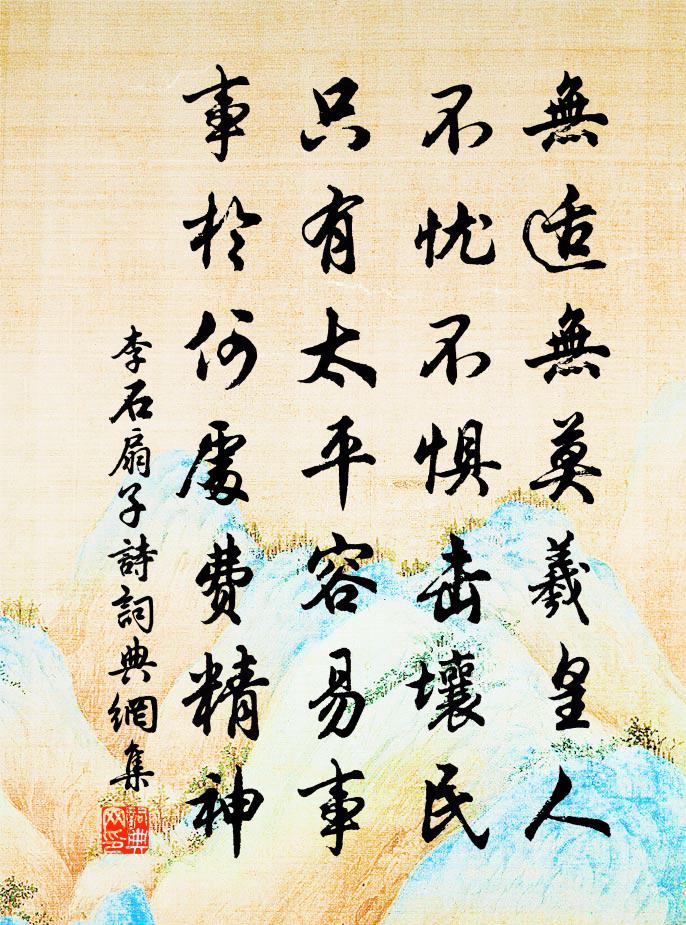 無适無莫羲皇人
不忧不惧击壤民
只有太平容易事
事於何處費精神
李石扇子詩詞典網集
詞典网印